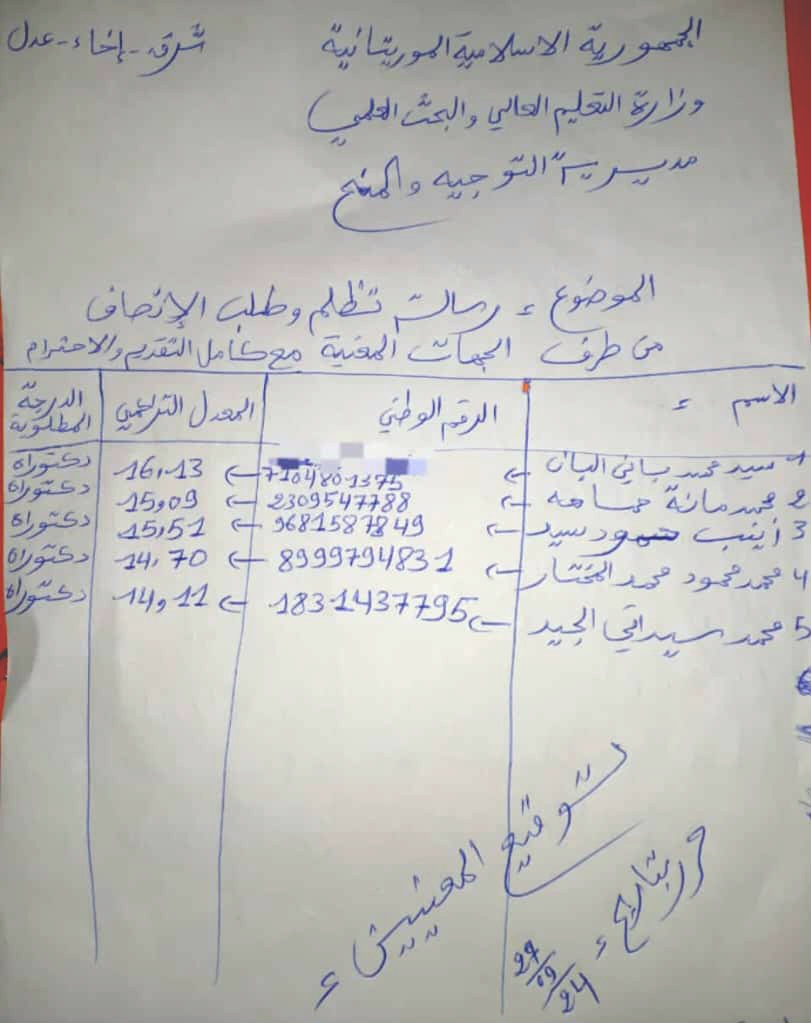 الجمهورية الاسلامية الموريتانية
شرف - إخاء - عدل
وزارة التعليم العالي والبحث العلمي
مديرية التوجيه والمنح
الموضوع : رسالت تظلم وطلب الإنصاف
من طرف الجهات المعنية مع كامل التقدير والاحترام
الاسم : الرقم الوطني المعدل التراكمي الدرجة المطلوبة
1 سيد محمد البان ← 7104801375 ← 16,13 دكتوراه
2 محمد ← 2309547788 ← 15,09 دكتوراه
3 زينب سيد ← 9681587849 ← 15,51 دكتوراه
4 محمد محمود محمد المختار ← 8999794831 ← 14,70 دكتوراه
5 محمد سيداتي الجيد ← 1831437795 ← 14,11 دكتوراه
توقيع المعنيين :
حرر بتاريخ :
27/09/24